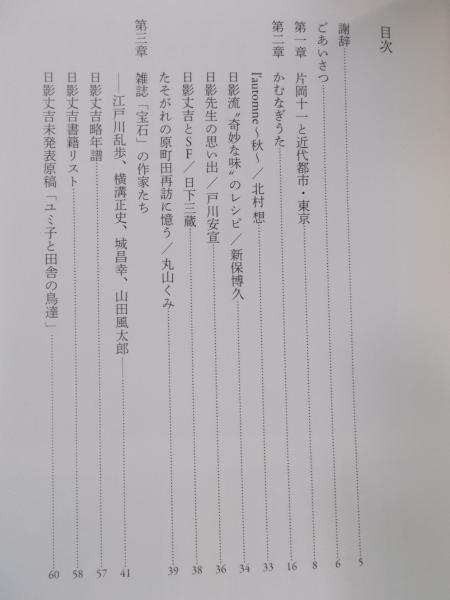 目次
謝辞 5
ごあいさつ 6
第一章 片岡十一と近代都市・東京 8
第二章 かむなぎうた 16
l'automne～秋～／北村 想 33
日影流〝奇妙な味〟のレシピ／新保博久 34
日影先生の思い出／戸川安宣 36
日影丈吉とSF／日下三蔵 38
たそがれの原町田再訪に憶う／丸山くみ 39
第三章 雑誌「宝石」の作家たち
――江戸川乱歩、横溝正史、城昌幸、山田風太郎―― 41
日影丈吉略年譜 57
日影丈吉書籍リスト 58
日影丈吉未発表原稿「ユミ子と田舎の鳥達」 60